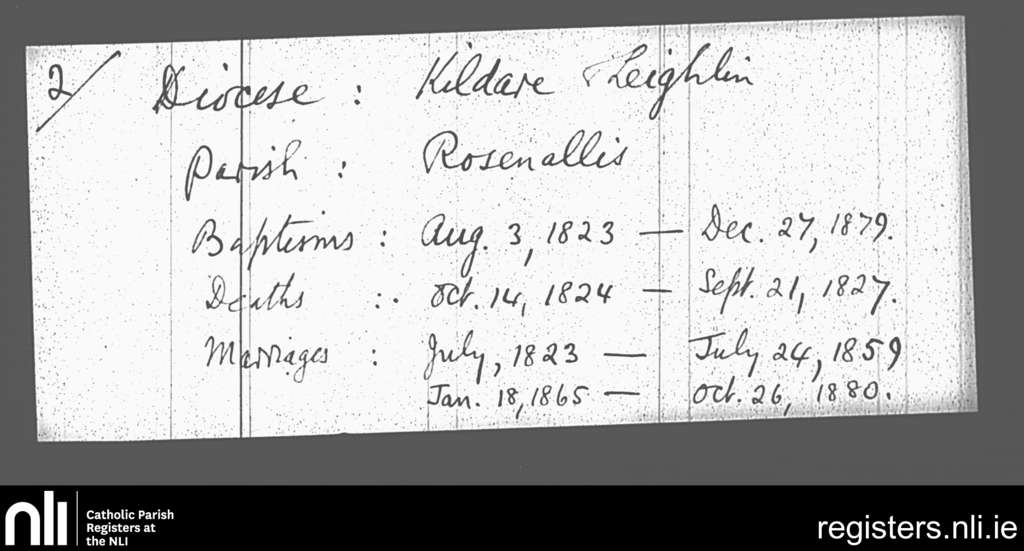 2/ Diocese : Kildare & Leighlin
Parish : Rosenallis
Baptisms : Aug. 3, 1823 — Dec. 27, 1879.
Deaths : Oct. 14, 1824 — Sept. 21, 1827.
Marriages : July, 1823 — July 24, 1859
Jan. 18, 1865 — Oct. 26, 1880.
nli
Catholic Parish
Registers at
the NLI
registers.nli.ie